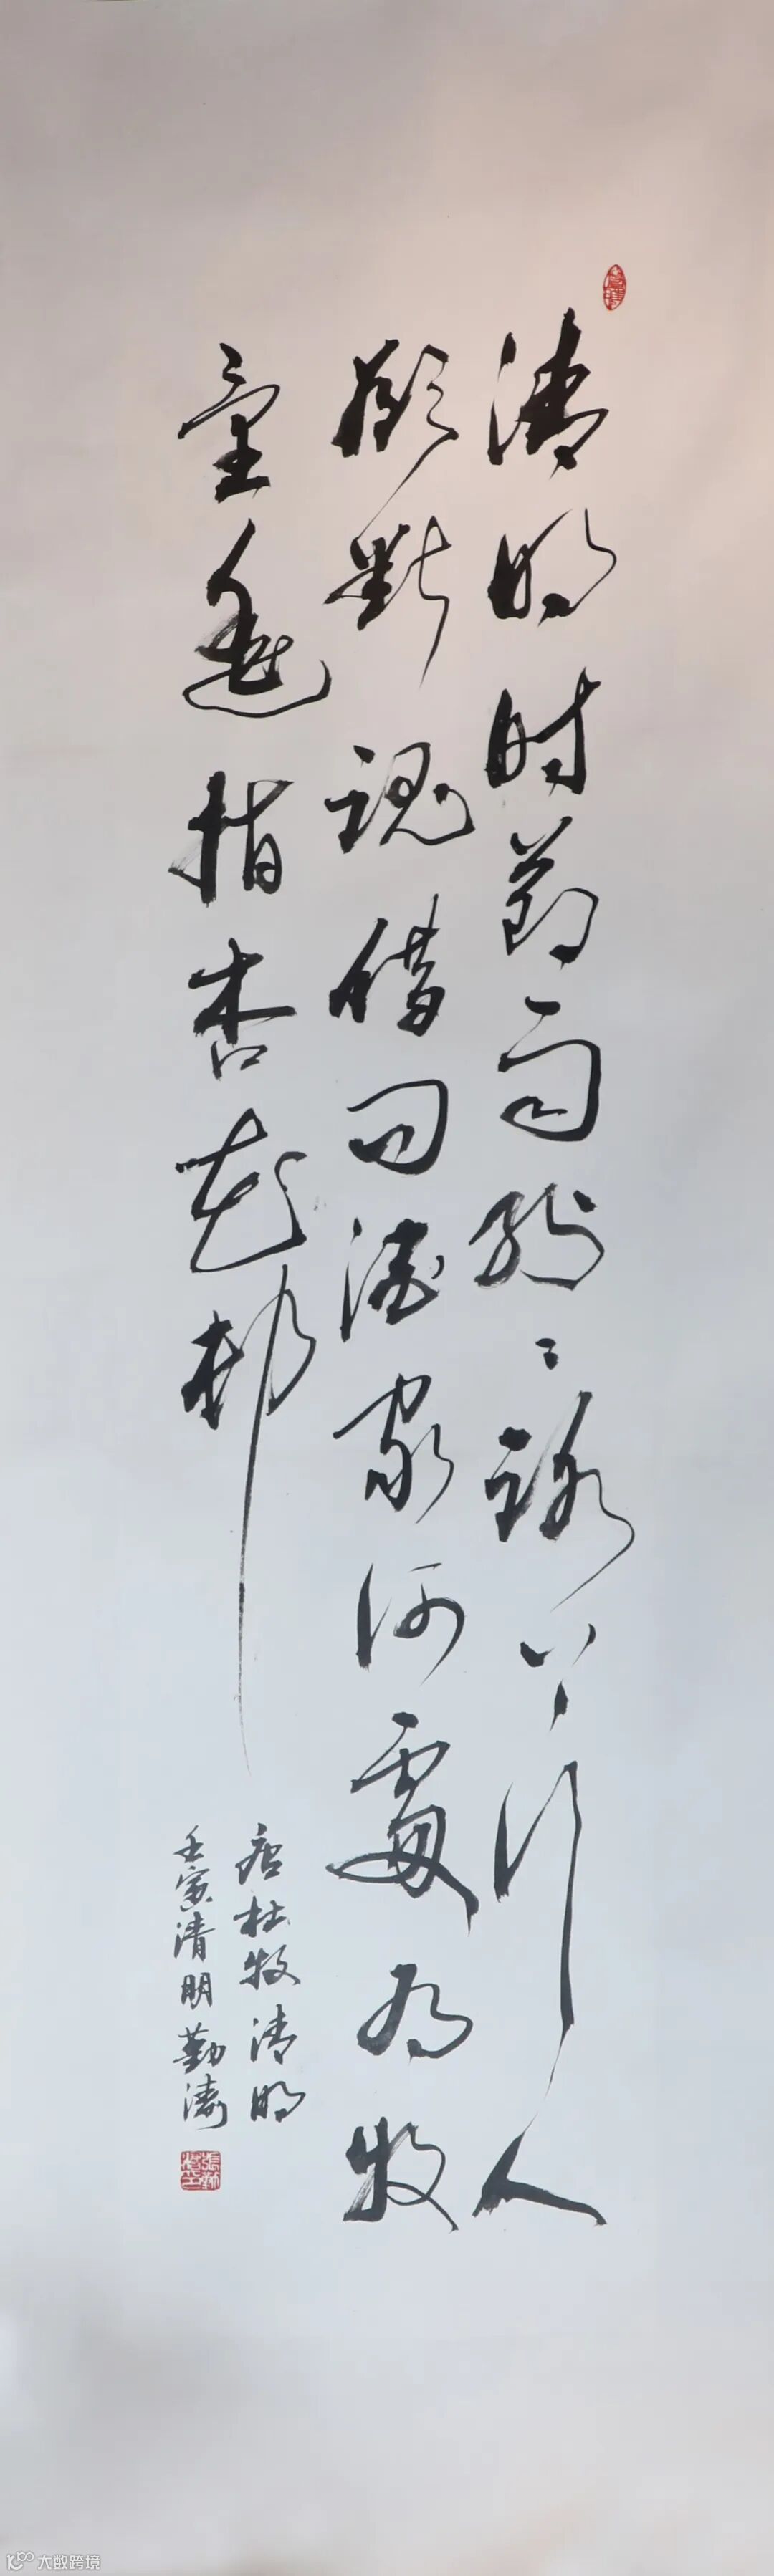 清明时節雨紛々路上行人
欲斷魂借问酒家何處有牧
童遥指杏花村
唐杜牧清明
壬寅清明勤濤
大数跨境